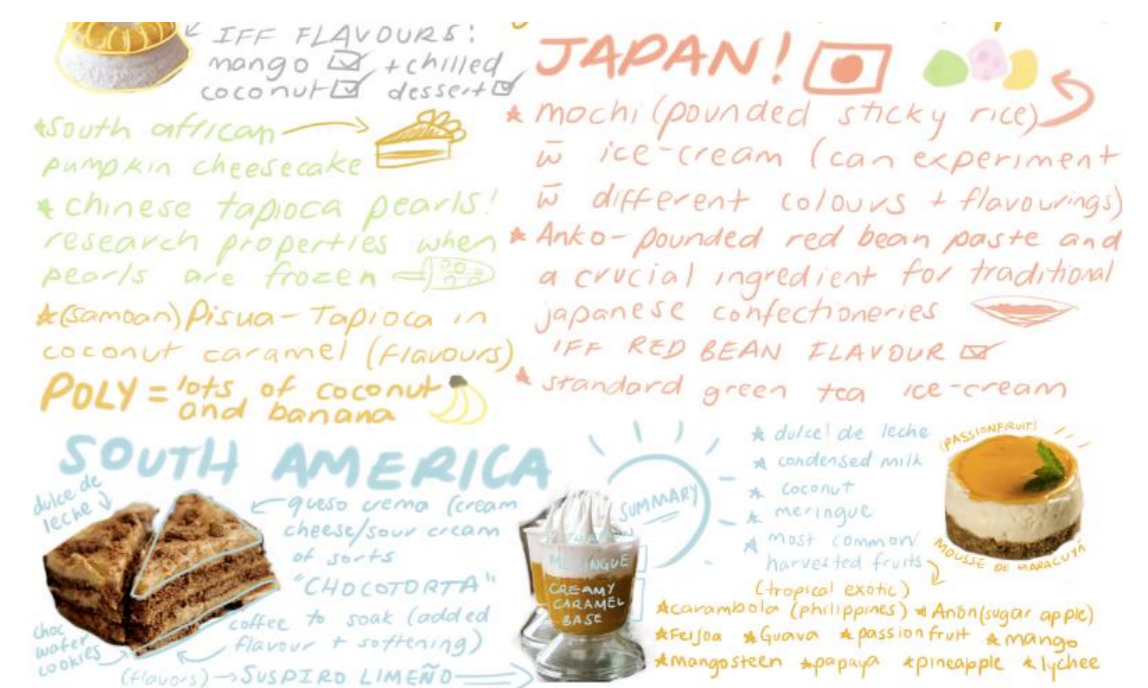 IFF FLAVOURS:
mango ☑ + chilled
coconut ☑ dessert ☑
*South african
pumpkin cheesecake
* chinese tapioca pearls!
research properties when
pearls are frozen
*(samoan) Pisua - Tapioca in
coconut caramel (flavours)
POLY = lots of coconut
and banana
JAPAN!
* mochi (pounded sticky rice)
w̄ ice-cream (can experiment
w̄ different colours + flavourings)
* Anko - pounded red bean paste and
a crucial ingredient for traditional
japanese confectioneries
IFF RED BEAN FLAVOUR ☑
* standard green tea ice-cream
SOUTH AMERICA
dulce de
leche
queso crema (cream
cheese/sour cream
of sorts
"CHOCOTORTA"
coffee to soak (added
flavour + softening)
choc
wafer
cookies
(flavors) → SUSPIRO LIMEÑO
MERINGUE
CREAMY
CARAMEL
BASE
SUMMARY
* dulcel de leche
* condensed milk
* coconut
* meringue
* most common/
harvested fruits
(tropical exotic)
(PASSIONFRUIT)
MOUSSE DE MARACUYÁ
*carambola (philippines) *Anón (sugar apple)
*Feijoa *Guava *passionfruit *mango
*mangosteen *papaya *pineapple *lychee